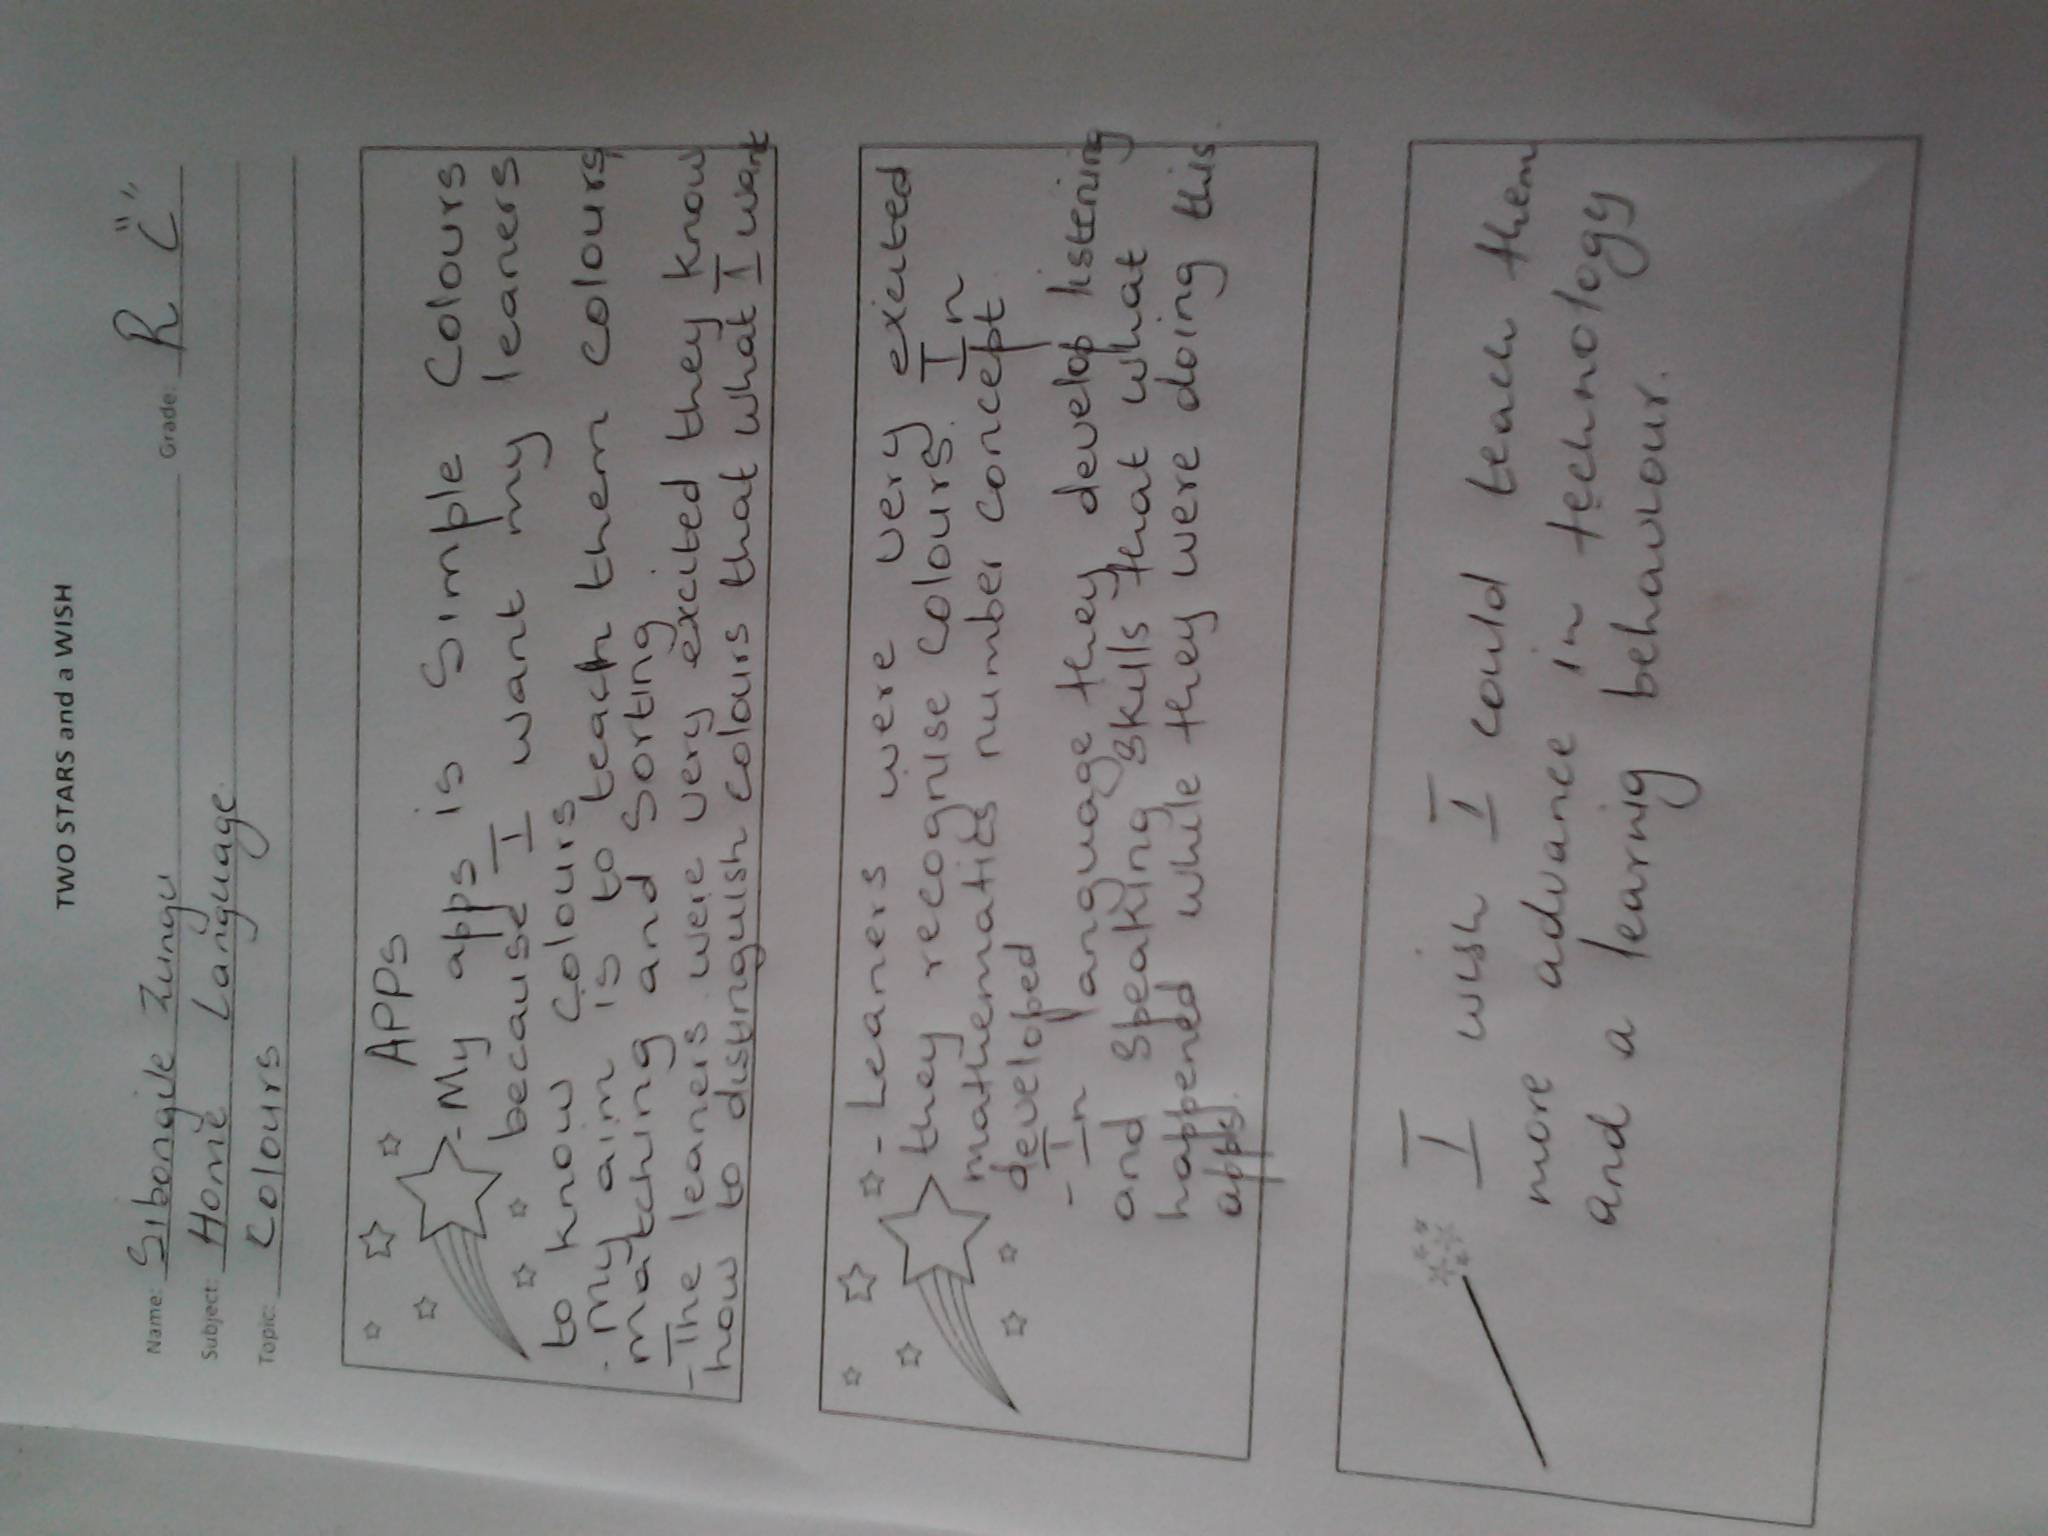 TWO STARS and a WISH
Name: Sibongile Zungu Grade: R "C"
Subject: Home Language.
Topic: Colours
APPs
- My apps is Simple Colours
because I want my leaners
to know Colours
- My aim is to teach them colours,
matching and Sorting
- The leaners were very excited they know
how to distinguish colours that what I want
- Leaners were very exicted
they recognise colours. In
mathematics number concept
developed
- In language they develop listening
and speaking skills that what
happened while they were doing this
apps.
I wish I could teach them
more advance in technology
and a learnig behaviour.